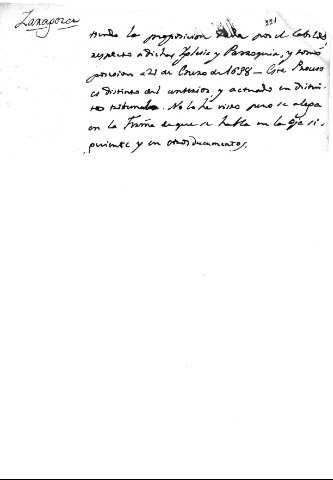 Zaragoza
321
tiendo la proposicion dada por el Cabildo
respecto a dichas Iglesia y Parroquia, y tomó
posesion a 21 de Enero de 1698 — Este Proceso
es distinto del anterior, y actuado en distin-
tos tribunales. No lo he visto pero se alega
en la Firma de que se habla en la hoja si-
guiente y en otros documentos.